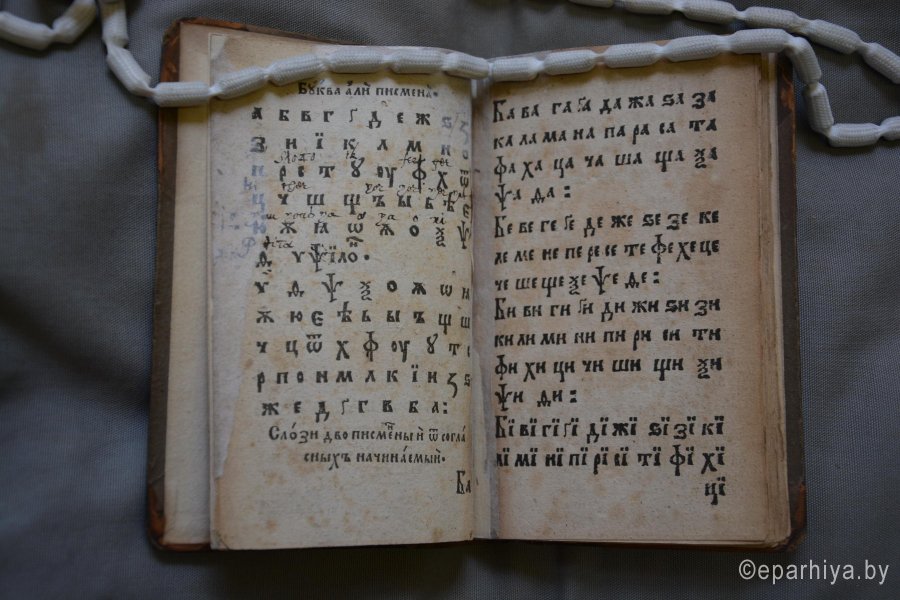 Бꙋ́ква а҆́ли писмена̀.
а б в г ґ д е ж ѕ ꙁ
з и ї к л м н о
п р с т ꙋ оу ф х ѿ
ц ч ш щ ъ ы ь ѣ є
ю ѫ ꙗ ѡ ѧ о ѯ ѱ
ѳ ѵ ѱїло̀.
ѵ ѳ ѱ ѯ о ѧ ѡ ꙗ
ѫ ю є ѣ ь ы ъ щ ш
ч ц ѿ х ф оу ꙋ т с
р п о н м л к ї и ꙁ ѕ
ж е д ґ г в б а:
Сло́зи двописме́ны й ѿ согла́
сныхъ начина́емый.
Ба
Ба ва га ґа да жа ѕа за
ка ла ма на па ра са та
фа ха ца ча ша ща ѯа
ѱа ѳа:
Бе ве ге ґе де же ѕе зе ке
ле ме не пе ре се те фе хе це
че ше ще ѯе ѱе ѳе:
Би ви ги ґи ди жи ѕи зи
ки ли ми ни пи ри си ти
фи хи ци чи ши щи ѯи
ѱи ѳи:
Бї вї гї ґї дї жї ѕї зї кї
лї мї нї пї рї сї тї фї хї
цї
©eparhiya.by